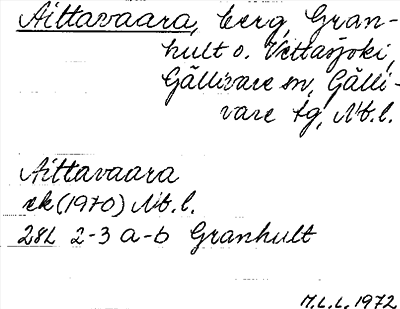 Aittavaara, berg, Gran-
hult o. Vettasjoki,
Gällivare sn, Gälli-
vare tg, Nb.l.
Aittavaara
ek (1970) Nb.l.
28L 2-3 a-b Granhult
M.L.L. 1972